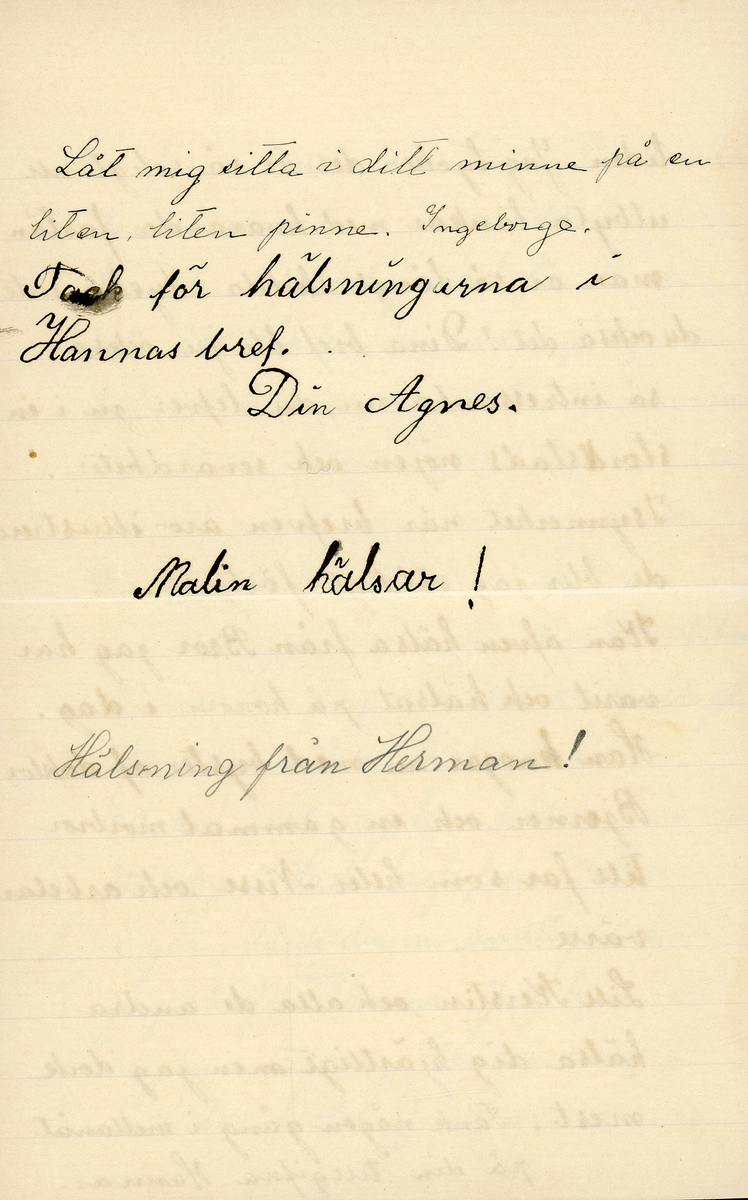 Låt mig sitta i ditt minne på en
liten, liten pinne. Ingeborge.
Tack för hälsningarna i
Hannas bref.
Din Agnes.
Malin hälsar!
Hälsning från Herman!